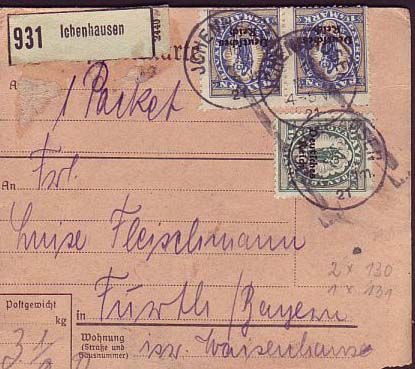 931 Ichenhausen
Deutsches Reich
Deutsches Reich
JCHEN
21
21
Deutsches Reich
21
1 Packet
An
Frl.
An
Luise Fleischmann
2 x 130
1 x 131
Postgewicht
kg
in Fürth / Bayern
Wohnung
(Straße und
Hausnummer)
isr. Waisenhaus
3 1/2